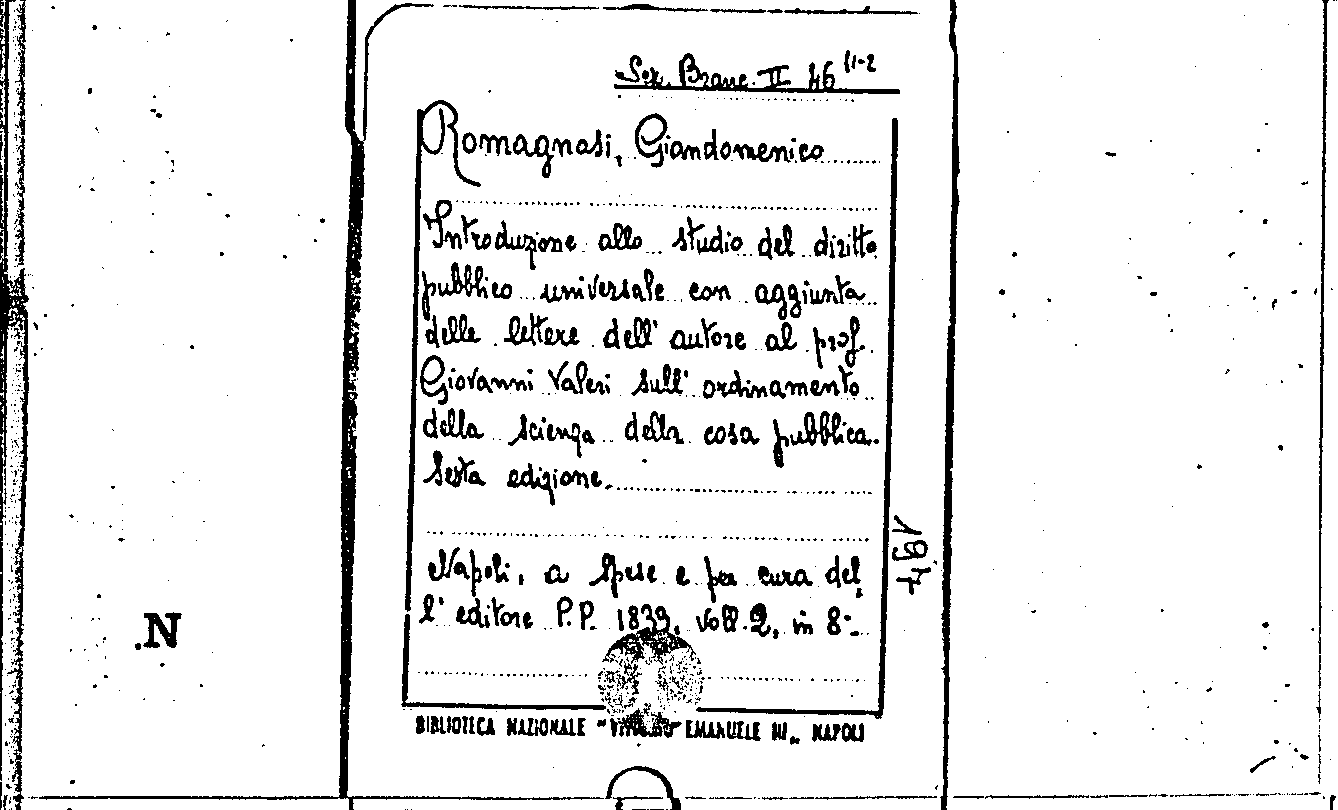 Sez. Branc. II 46 (1-2
Romagnosi, Giandomenico
Introduzione allo studio del diritto
pubblico universale con aggiunta
delle lettere dell' autore al prof.
Giovanni Valeri sull' ordinamento
della scienza della cosa pubblica.
Sesta edizione.
Napoli, a spese e per cura del,
l' editore P.P. 1839, voll. 2, in 8°.
BIBLIOTECA NAZIONALE "VITTORIO EMANUELE III„ NAPOLI
.N